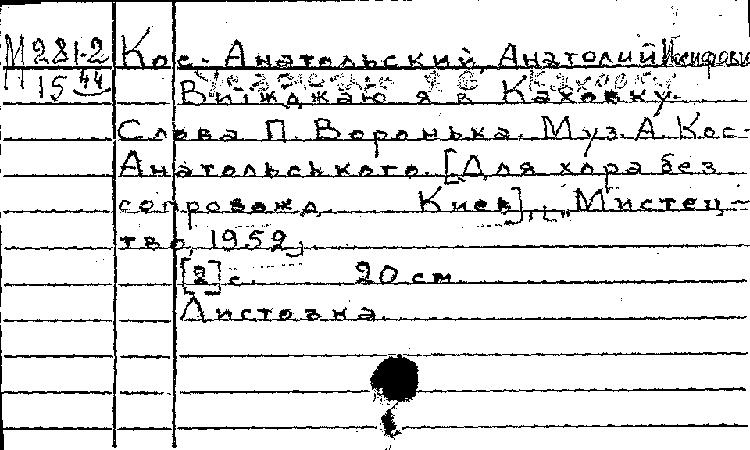 М 281-2 Кос-Анатольский, Анатолий Иосифович
15 44 Виїжджаю я в Каховку.
Слова П. Воронька. Муз. А. Кос-
Анатольського. [Для хора без
сопровожд Киев], "Мистец-
тво", 1952,
[2] с. 20 см
Листовка.